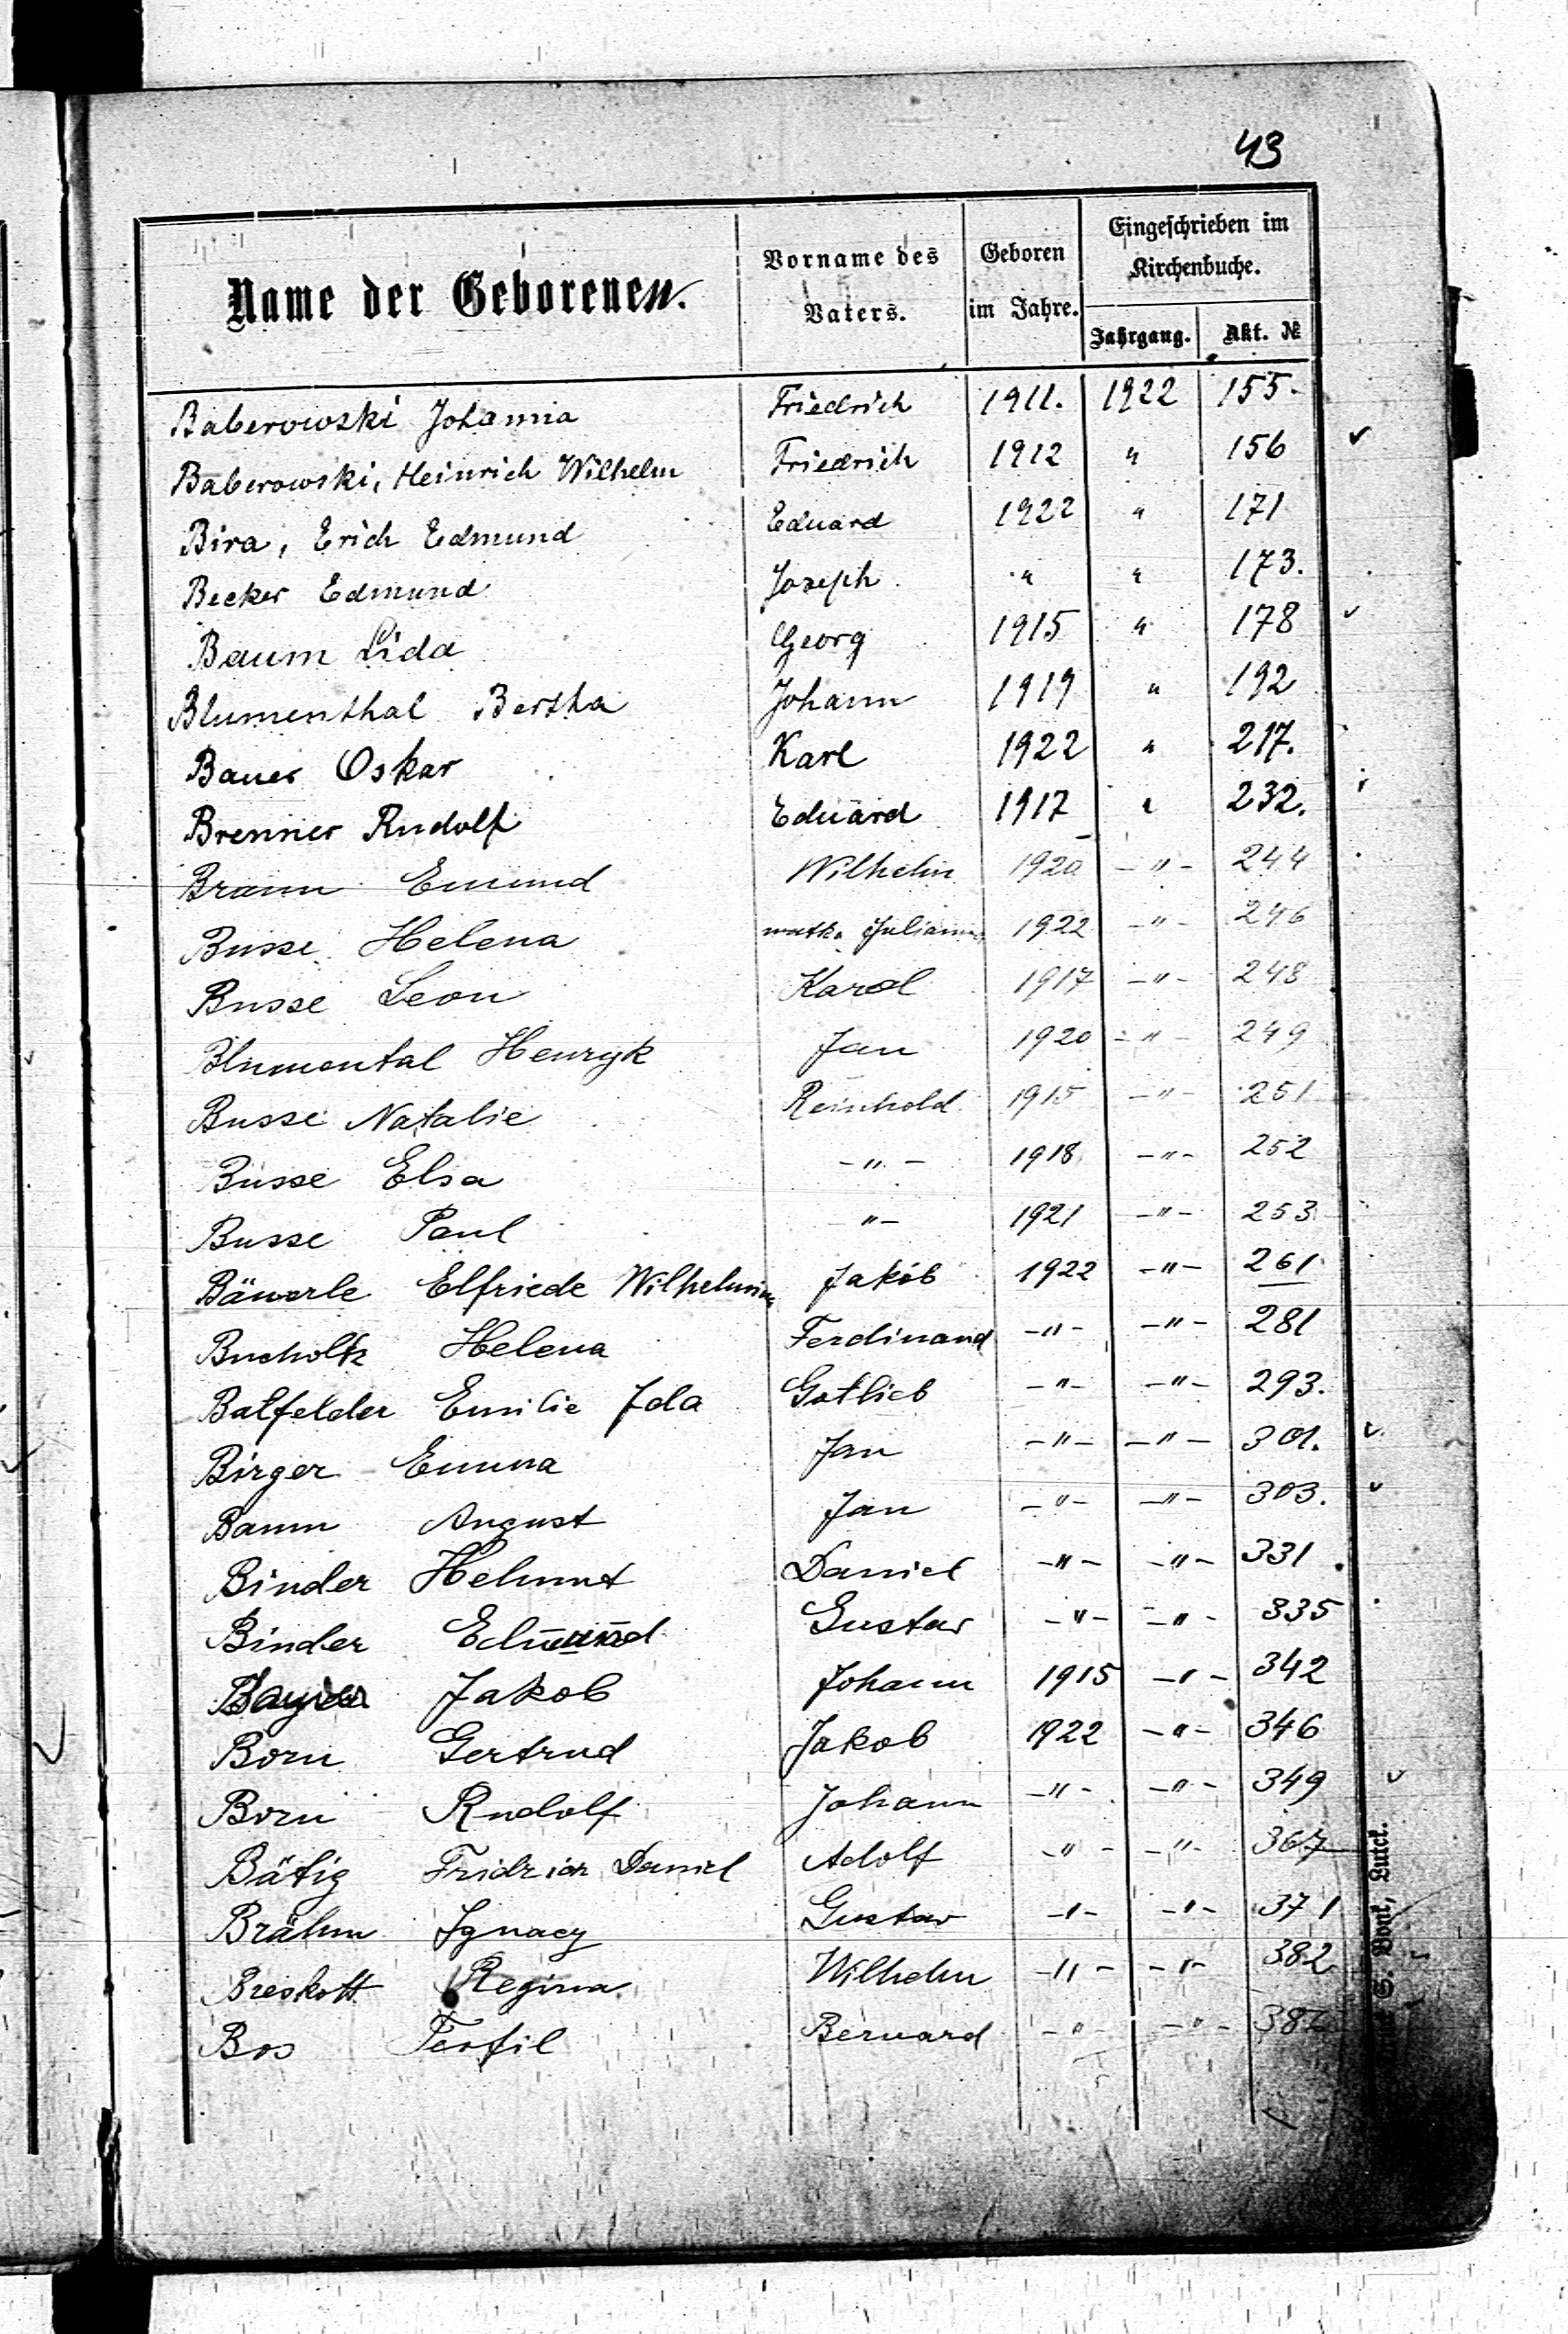 43
Name der Geborenen. Vorname des Vaters. Geboren im Jahre. Eingeschrieben im Kirchenbuche.
Jahrgang. Akt. №
Baberowski Johanna Friedrich 1911. 1922 155.
Baberowski, Heinrich Wilhelm Friedrich 1912 " 156
Bira, Erich Edmund Eduard 1922 " 171
Becker Edmund Joseph " " 173.
Baum Lida Georg 1915 " 178
Blumenthal Bertha Johann 1919 " 192
Bauer Oskar Karl 1922 " 217.
Brenner Rudolf Eduard 1917 " 232.
Braun Emund Wilhelm 1920 -"- 244
Busse Helena matka Julianna 1922 -"- 246
Busse Leon Karol 1917 -"- 248
Blumental Henryk Jan 1920 -"- 249
Busse Natalie Reinhold 1915 -"- 251
Busse Elsa -"- 1918 -"- 252
Busse Paul "- 1921 -"- 253
Bäuerle Elfriede Wilhelmina Jakób 1922 -"- 261
Bucholtz Helena Ferdinand -"- -"- 281
Batfelder Emilie Ida Gotlieb -"- -"- 293.
Birger Emma Jan -"- -"- 301.
Baum August Jan -"- -"- 303.
Binder Helmut Daniel -"- -"- 331
Binder Edmund Gustav -"- -"- 335
Jakob Johann 1915 -"- 342
Born Gertrud Jakob 1922 -"- 346
Born Rudolf Johann -"- -"- 349
Bätig Daniel Adolf -"- -"- 367
Brähm Ignacy Gustaw -"- -"- 371
Breskott Regina Wilhelm -"- -"- 382
Bos Teofil Bernard -"- -"-